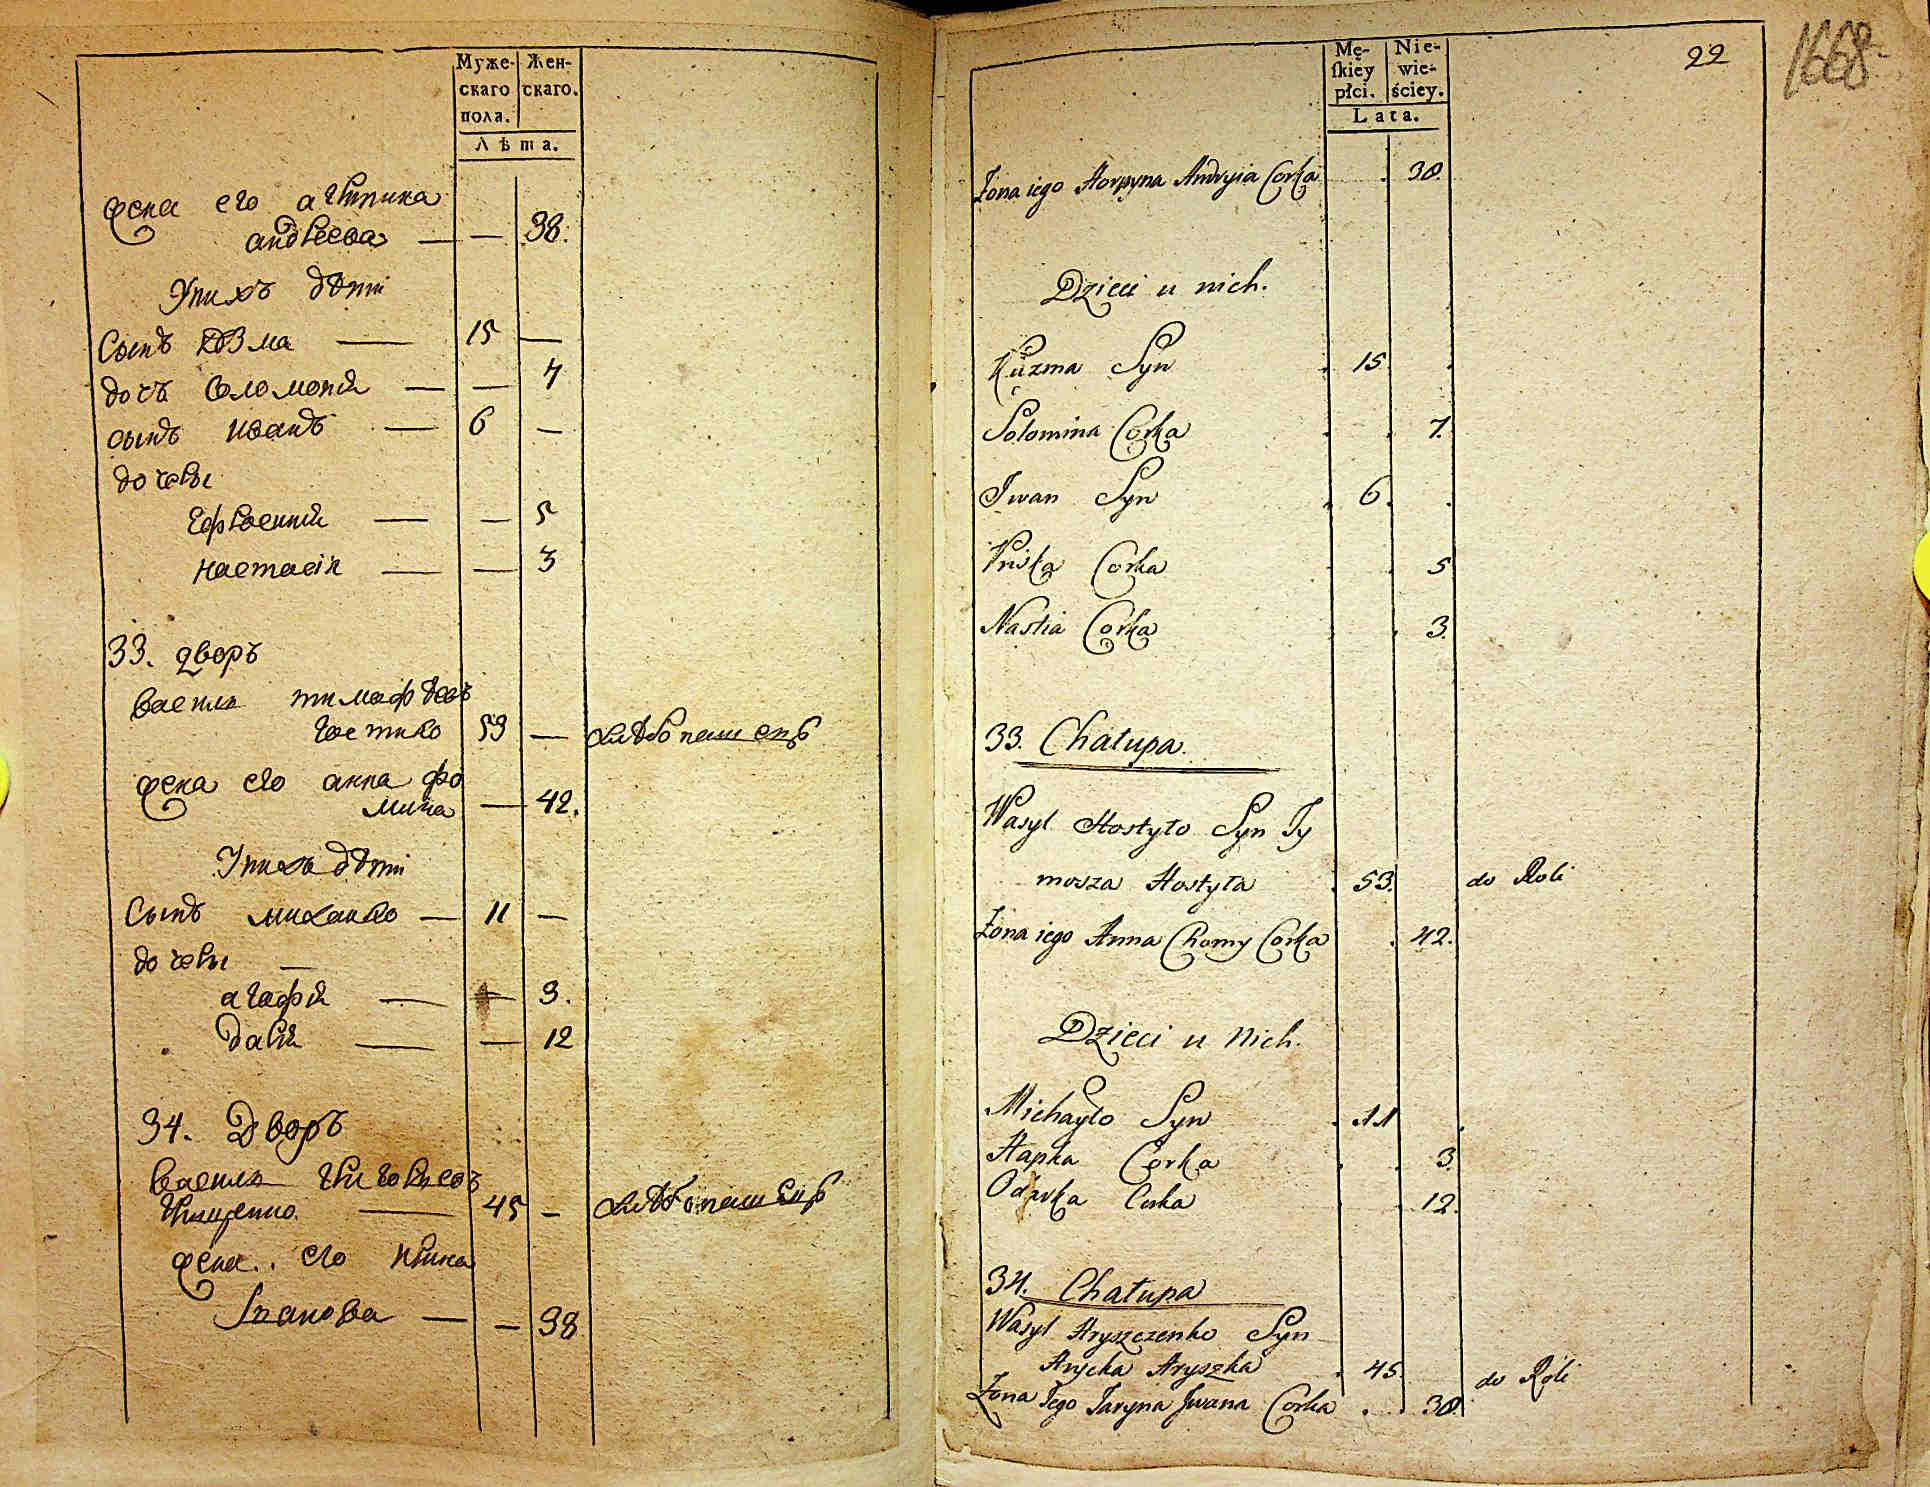 Муже-
скаго
пола.
Жен-
скаго.
Лѣта.
жена его агрипина
андреева — — 38.
У нихъ дѣти
Сынъ кузма — 15 —
дочь соломония — — 7
сынъ иванъ — 6 —
дочеры
ефросиния — — 5
настасія — — 3
33. дворъ
василь тимофѣевъ
гостило 53 — хлѣбопашецъ
жена его анна фо
мина — 42.
У нихъ дѣти
Сынъ михаило — 11 —
дочеры —
агафия — — 3.
дария — — 12
34. Дворъ
василь григориевъ
грищенко — 45 — хлѣбопашецъ
жена его ирина
Іванова — — 38
Mę-
skiey
płci.
Nie-
wie-
ściey.
Lata.
22
1668
Żona iego Horpyna Andryia Corka . 38.
Dzieci u nich.
Kuzma Syn . 15 .
Solomina Corka . . 7.
Jwan Syn . 6. .
Pryska Corka . 5
Nastia Corka . 3.
33. Chałupa.
Wasyl Hostyło Syn Ty
mosza Hostyła . 53. do Roli
Żona iego Anna Chomy Corka . 42.
Dzieci u Nich.
Michayło Syn . 11 .
Hapka Corka . . 3.
Odarka Corka . . 12.
34. Chałupa
Wasyl Hryszczenko Syn
Hrycka Hryszka . 45. do Roli
Żona Jego Jaryna Jwana Corka . . 38.